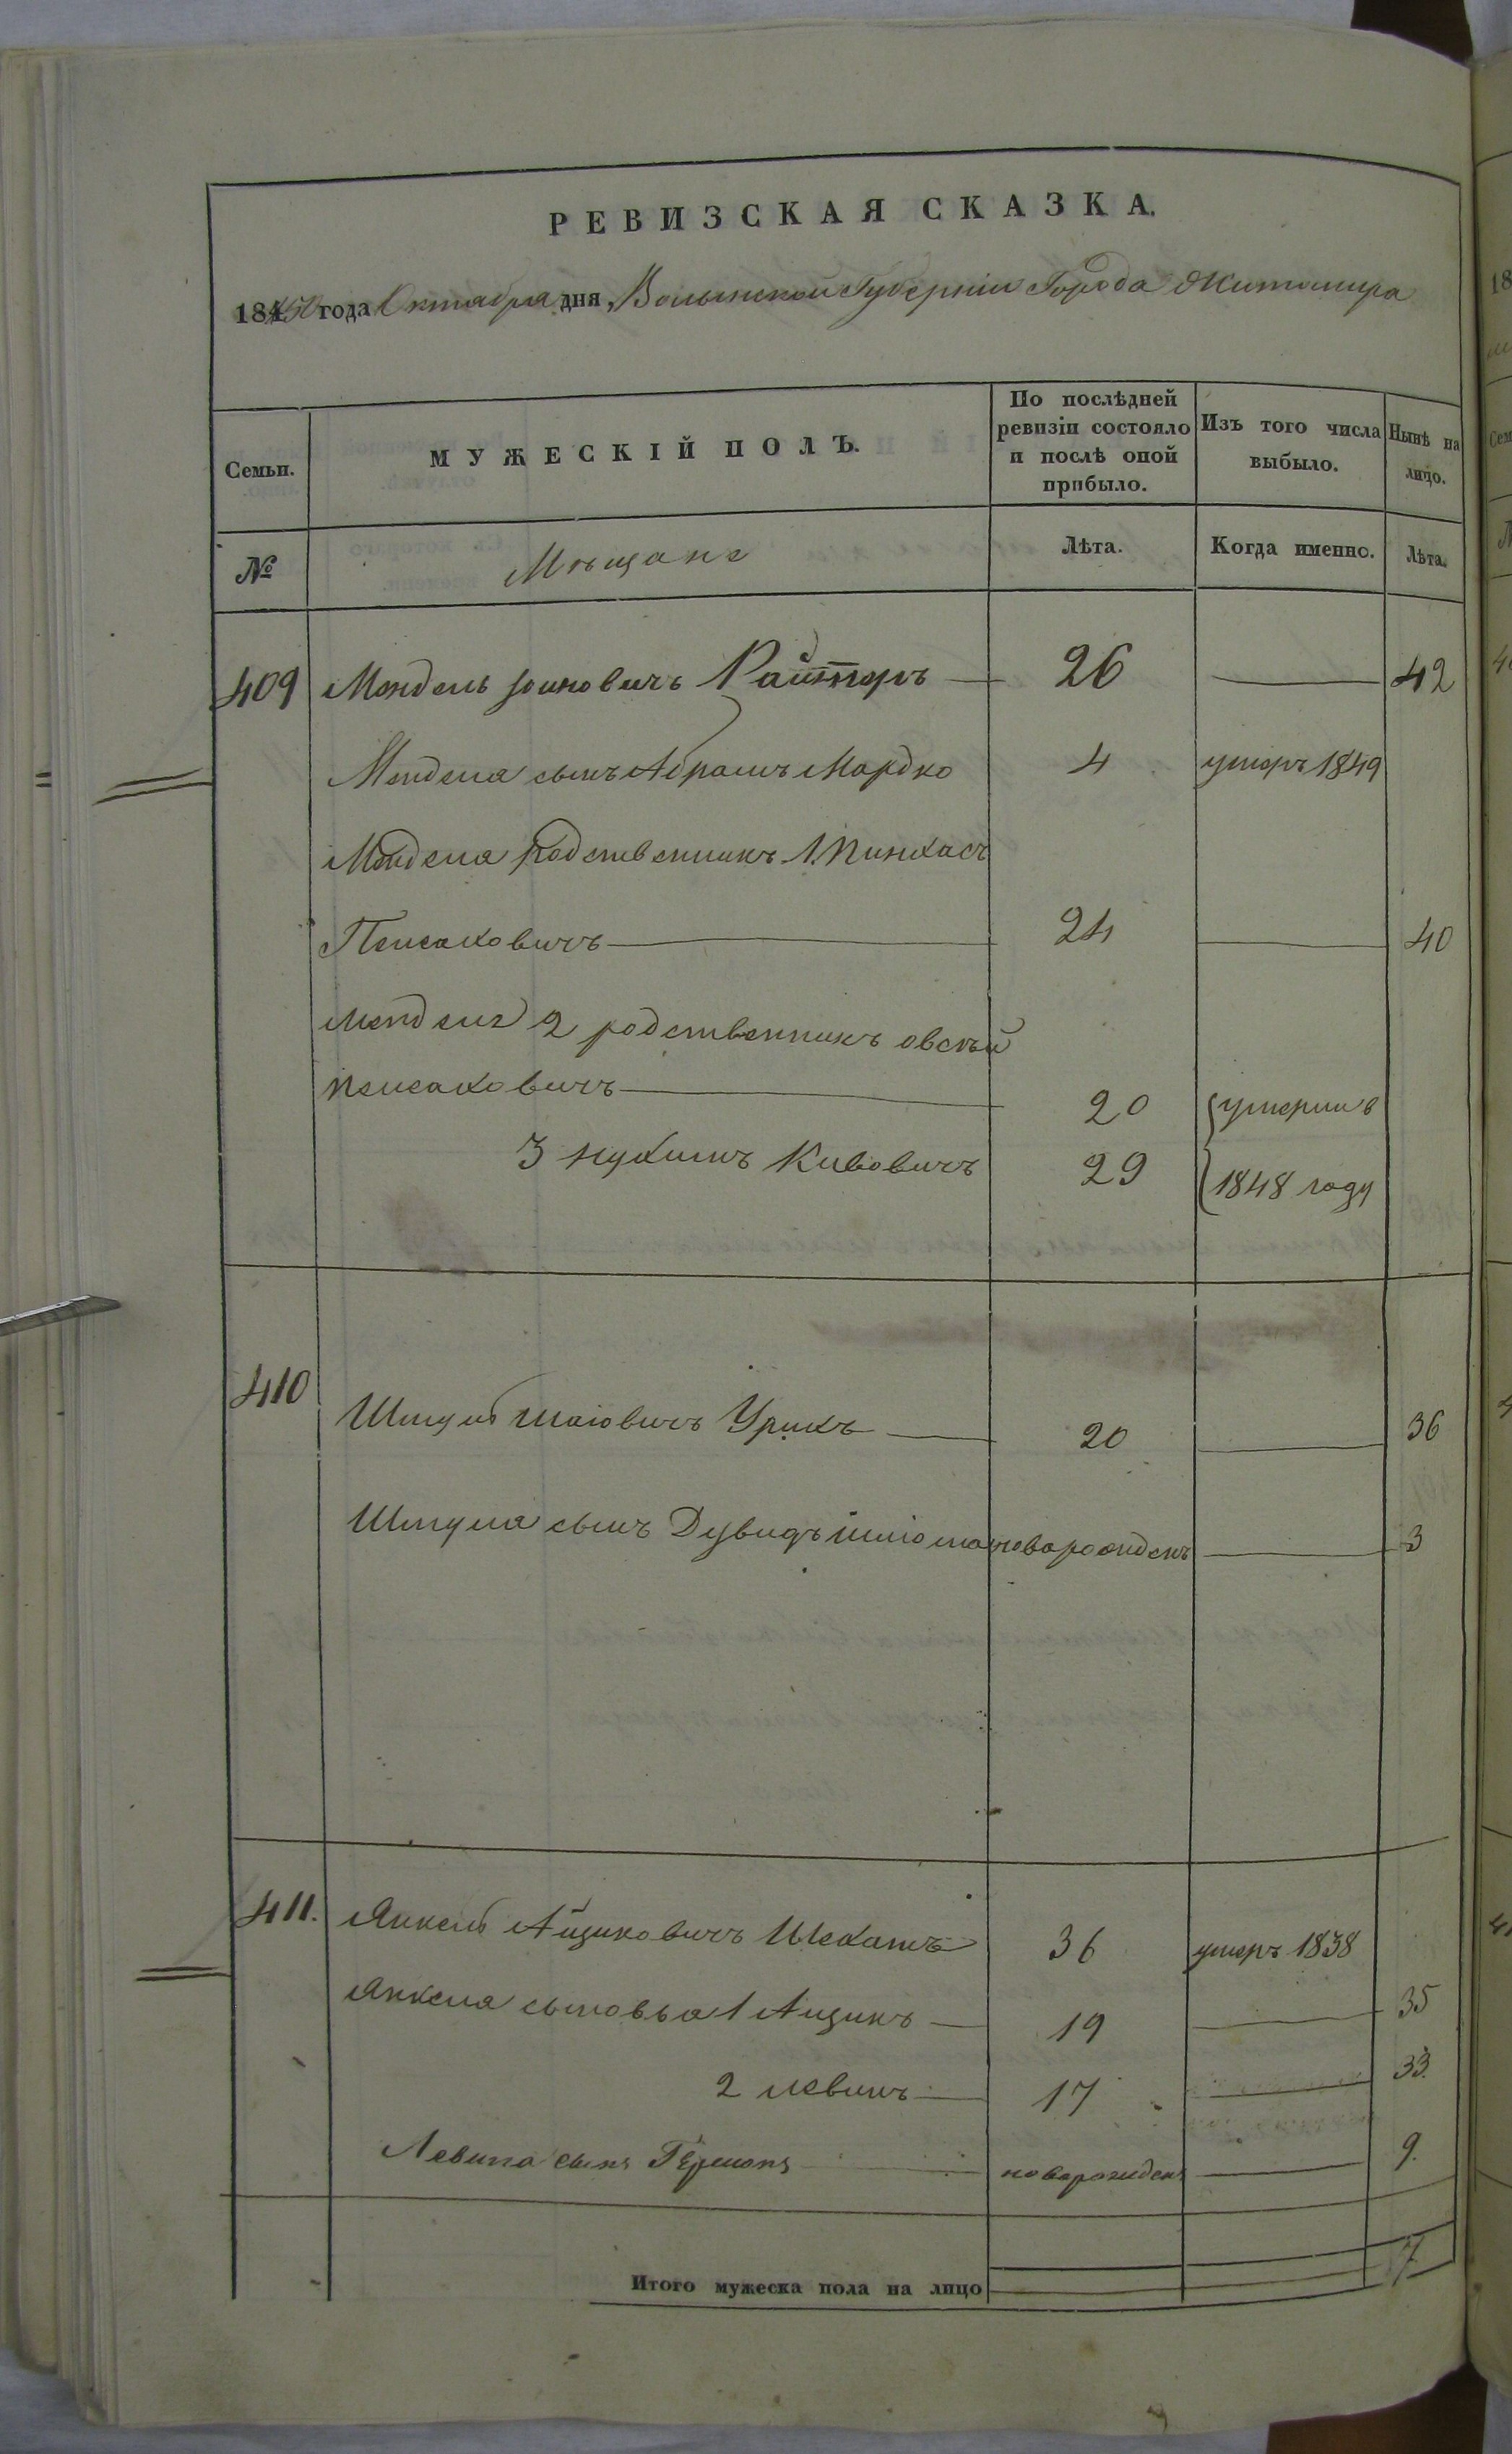 РЕВИЗСКАЯ СКАЗКА.
1850 года Октября дня, Волынской Губерніи Города Житомира
Семьи.
МУЖЕСКІЙ ПОЛЪ.
По послѣдней ревизіи состояло и послѣ оной прибыло.
Изъ того числа выбыло.
Нынѣ на лицо.
№
Мѣщане
Лѣта.
Когда именно.
Лѣта.
409 Мендель Іоиновичъ 26 42
Менделя сынъ Абрамъ Мордко 4 умеръ 1849
Менделя родственникъ 1. Пинхасъ
Пейсаховичъ 24 40
Менделя 2 родственникъ Овсѣй
Пейсаховичъ 20 умерли в
3 Нухимъ Кивовичъ 29 1848 году
410 Шмуль Шаіовичъ Урихъ 20 36
Шмуля сынъ Дувидъ новарожденъ 3
411. Янкель Айциковичъ Шехатъ 36 умеръ 1838
Янкеля сыновья 1 Айцикъ 19 35
2 Левинъ 17 33.
Левина сынъ Гершонъ новарожденъ 9.
Итого мужеска пола на лицо 7